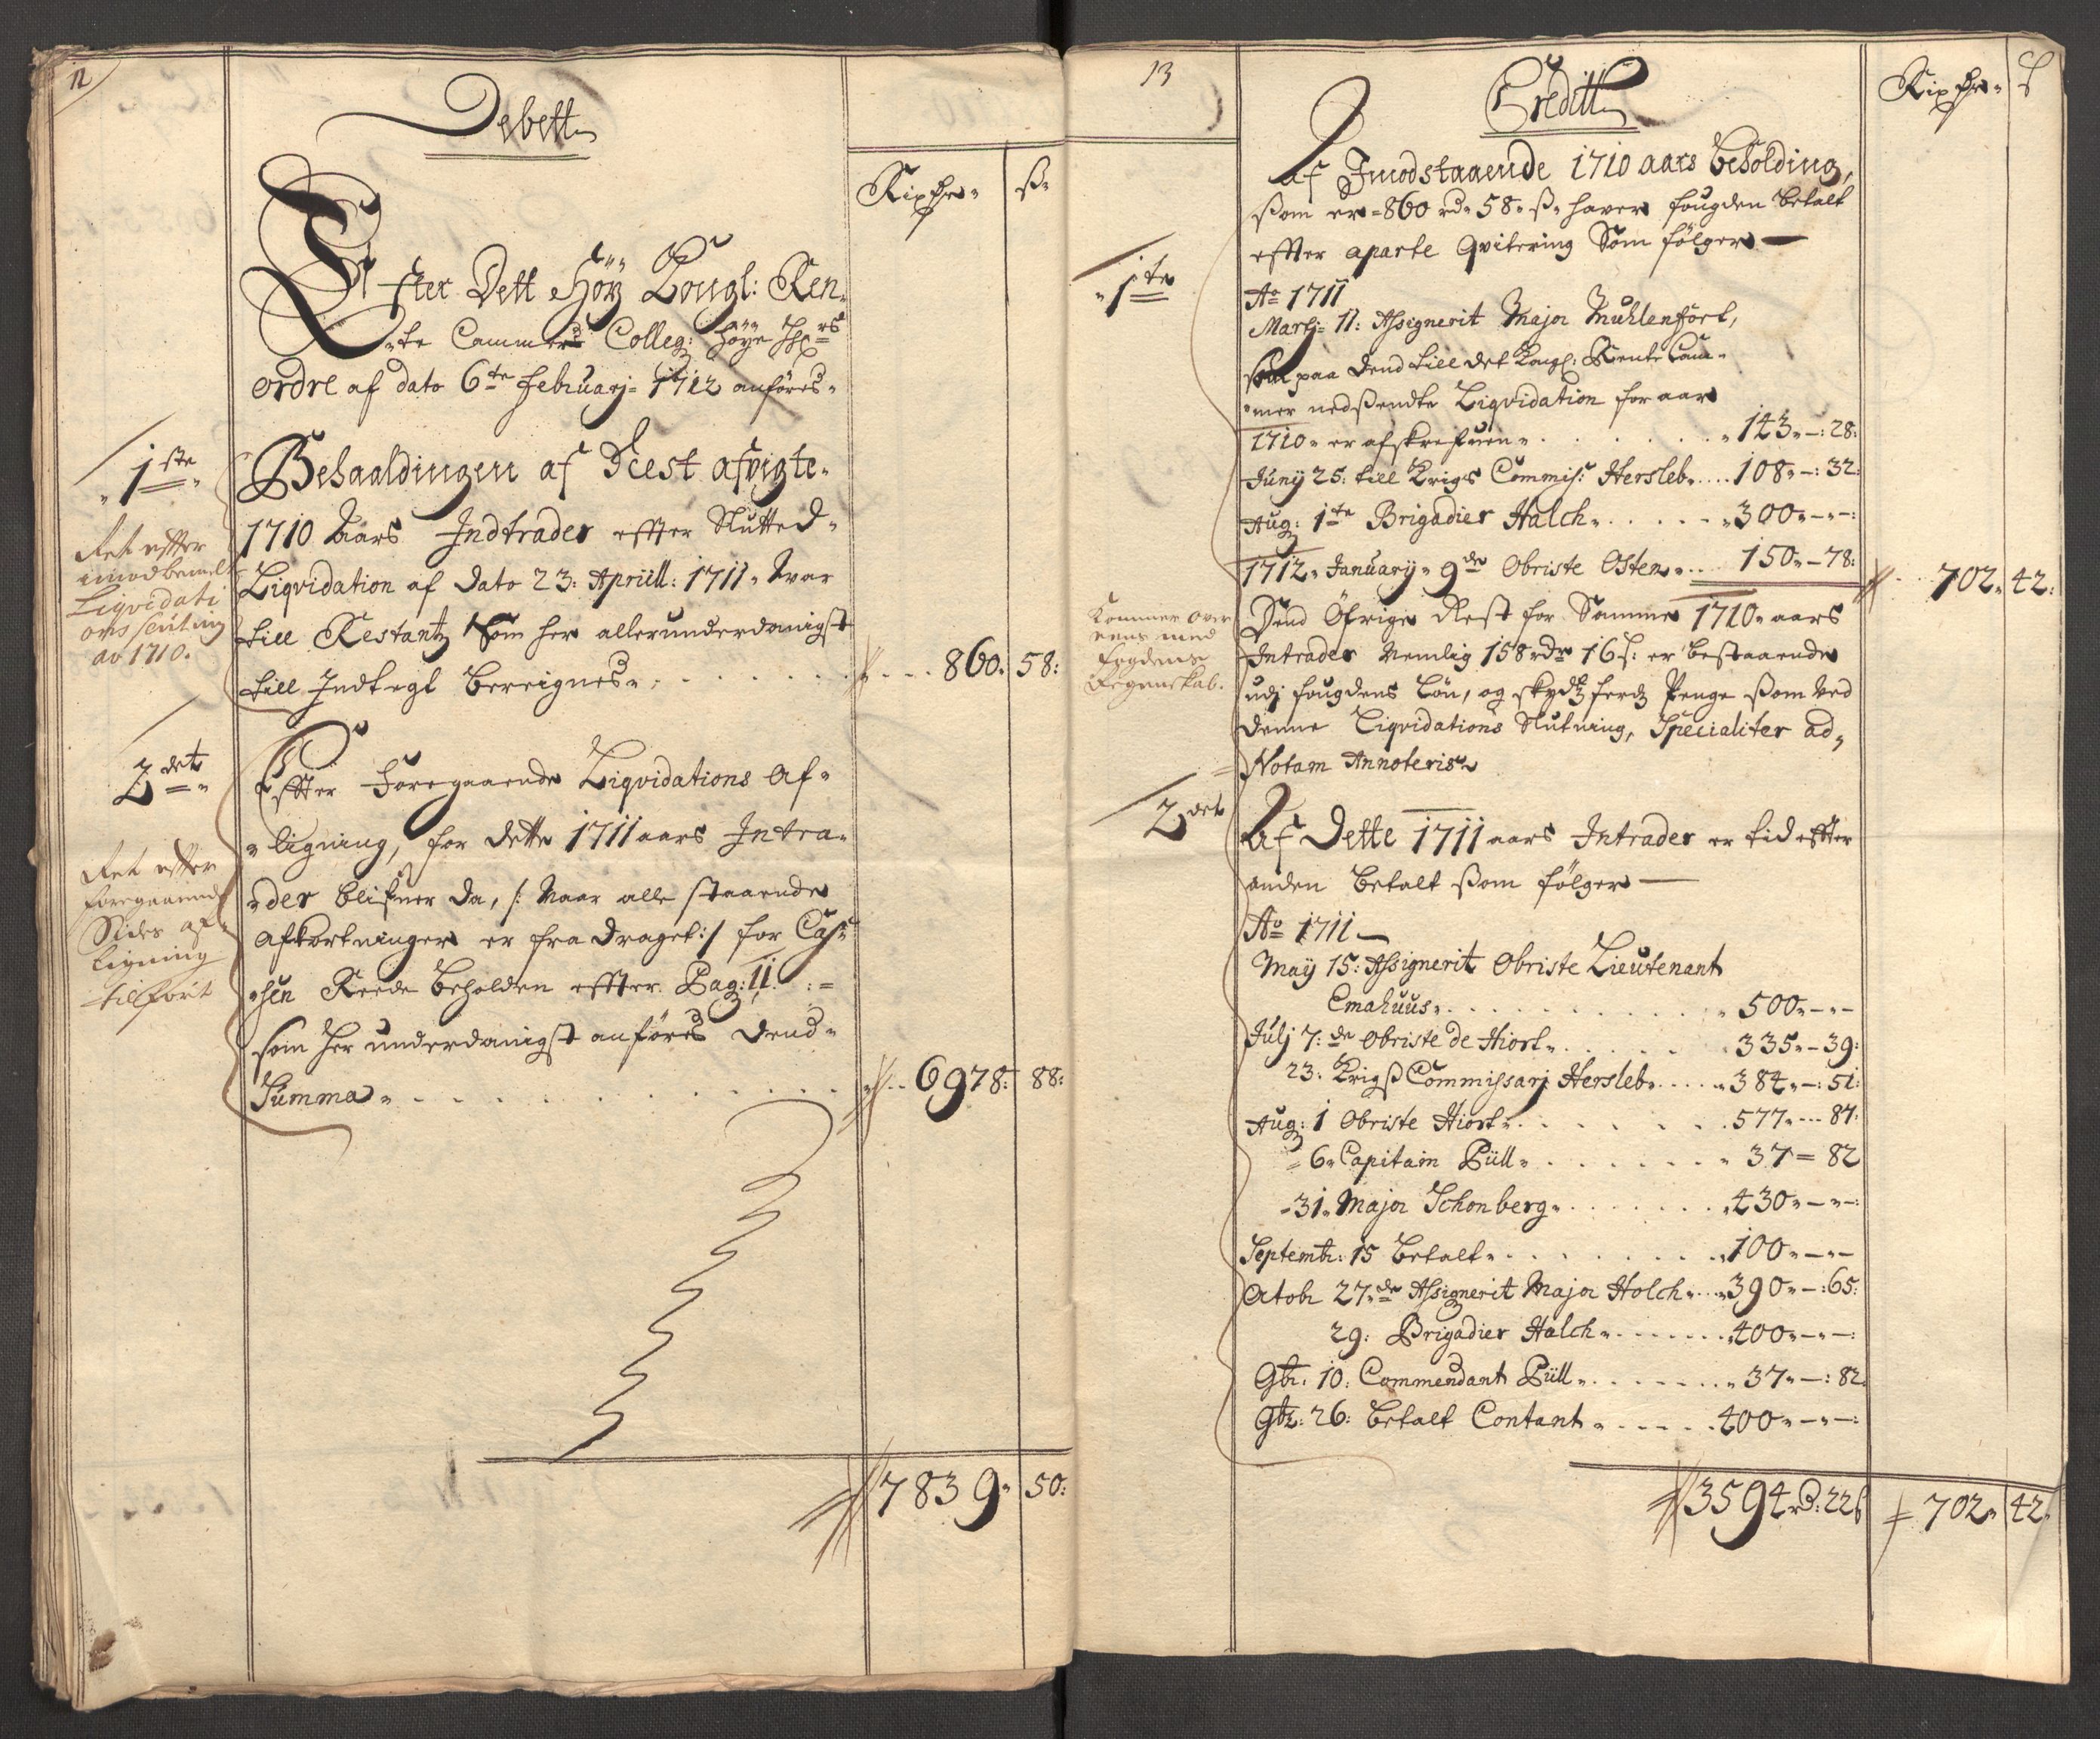 12
Debett
Rixdlr ß
Effter Dett Høy Kongl: Ren-
te Cammer Colleg: høye Hrs
ordre af dato 6te Februarj 1712 anføres
1ste
Behaaldingen af Neest afvigte
1710 Aars Indtrader effter Slutted
Liqvidation af dato 23: Apriill: 1711 Var
till Restantz Som her allerunderdanigst
till Indtegt bereignes 860. 58:
Ret efter
imodbemelt
Liqvidati
ons slutning
av 1710.
2det
Effter Foregaaende Liqvidations Af-
ligning, for dette 1711 aars Intra-
der blifuer da, /: Naar alle staaende
Afkortninger er fra draget :/ for Cas-
sen Reede beholden effter Pag: 11. :=
som her underdanigst anføres Dend
Summa 6978: 88:
Ret efter
foregaaende
Sides af-
ligning
tilført
7839. 50:
13
Creditt
Rixdlr ß
Af Imodstaaende 1710 aars beholding,
som er 860 rd 58 ß haver fougden betalt
effter aparte qvitering Som følger
1te
Ao 1711
Martj 11: Assignerit Major Muhlenfort,
som paa dend till det Kongl: Rente Cam-
mer nedsendte Liqvidation for aar
1710 er afskrefuen 143 -: 28:
Junij 25: till Krigs Commis: Hersleb 108 -: 32:
Aug: 1te Brigadier Halch 300 - -:
1712 January 9de Obriste Osten 150 - 78:
702. 42:
Kommer over
eens med
fogdens
Regenskab.
Dend Øfrige Rest for Samme 1710 aars
Intrader Nemlig 158 rdr 16 ß: er bestaaende
udj fougdens Løn, og skydtz ferdz Penge som ved
denne Liqvidations Slutning, Specialiter ad
Notam Annoteris
2det
Af Dette 1711 aars Intrader er tid effter
anden betalt som følger
Ao 1711
Maÿ 15: Assignerit Obriste Lieutenant
Emahuus 500 - -
Julj 7: de Obriste de Hiort 335 - 39:
23: Krigs Commissarj Hersleb 384 -: 51:
Aug: 1 Obriste Hiort 577 -- 87:
6 Capitain Püll 37 = 82
31 Major Schonberg 430 - -:
Septembr: 15 betalt 100 - -
Octobr 27de Assignerit Major Holch 390 -: 65:
29: Brigadier Halch 400 - -:
9br: 10: Commendant Püll 37 -: 82
9br: 26: betalt Contant 400 - -:
3594 rd: 22 ß 702 42